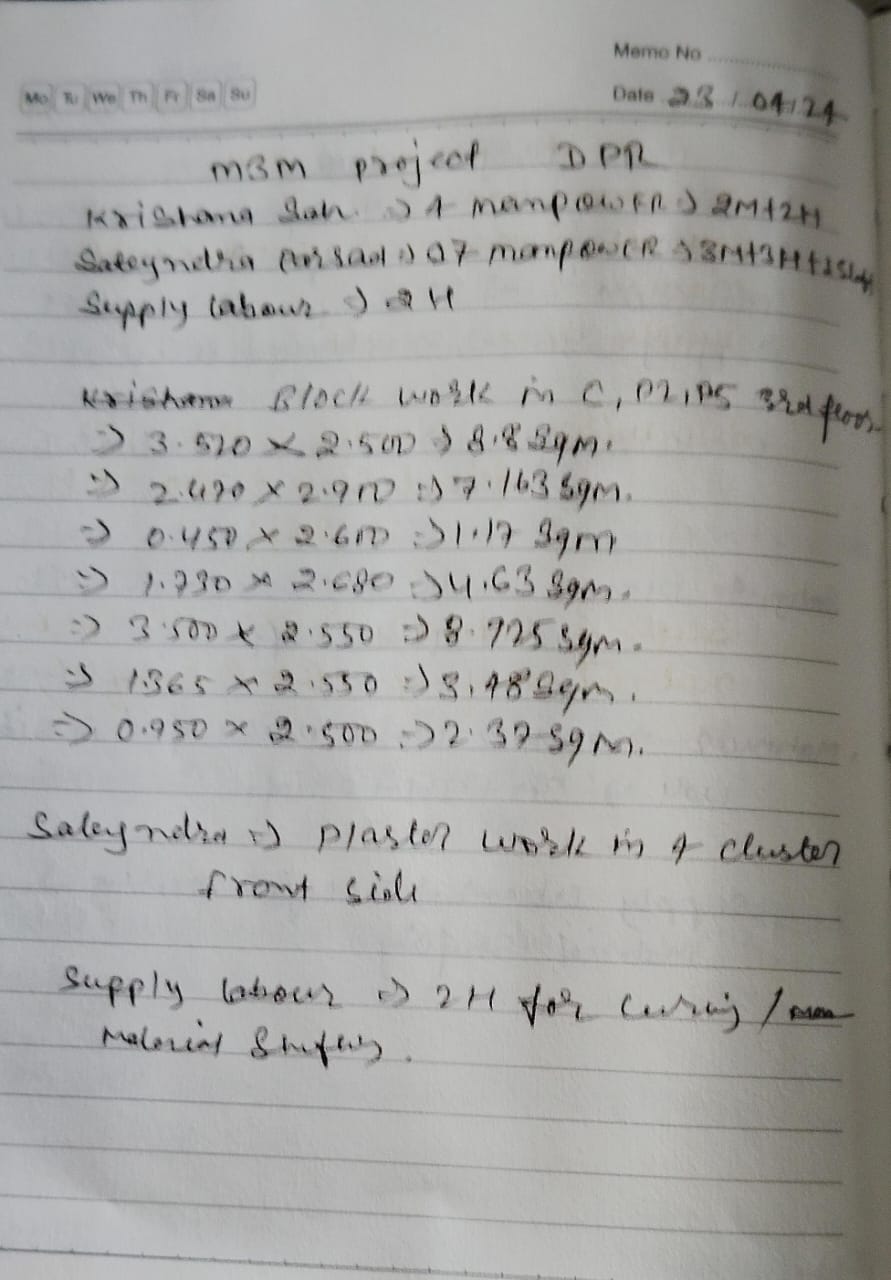 Memo No
Mo Tu We Th Fr Sa Su
Date 23/04/24
MBM project DPR
Krishana Sah. => 4 manpowER => 2M+2H
Sateyndra => 07 manpowER => 3M+3H+
Supply labour => 2H
Krishana Block work in C, P2, P5 3rd floor
=> 3.520 x 2.500 => 8.8 Sqm.
=> 2.470 x 2.900 => 7.163 Sqm.
=> 0.450 x 2.600 => 1.17 Sqm
=> 1.730 x 2.680 => 4.63 Sqm.
=> 3.500 x 2.550 => 8.925 Sqm.
=> 1.365 x 2.550 => 3.48 Sqm.
=> 0.950 x 2.500 => 2.37 Sqm.
Sateyndra => plaster work in 4 cluster
front side
Supply labour => 2H for curing /
Material